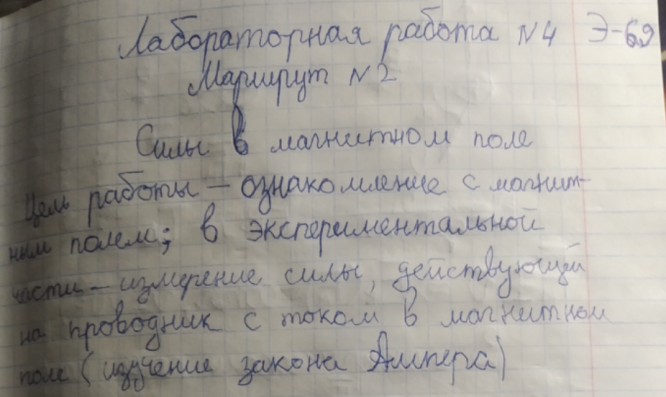 Лабораторная работа N4 Э-69
Маршрут N2
Силы в магнитном поле
Цель работы – ознакомление с магнит-
ным полем; в экспериментальной
части – измерение силы, действующей
на проводник с током в магнитном
поле (изучение закона Ампера)